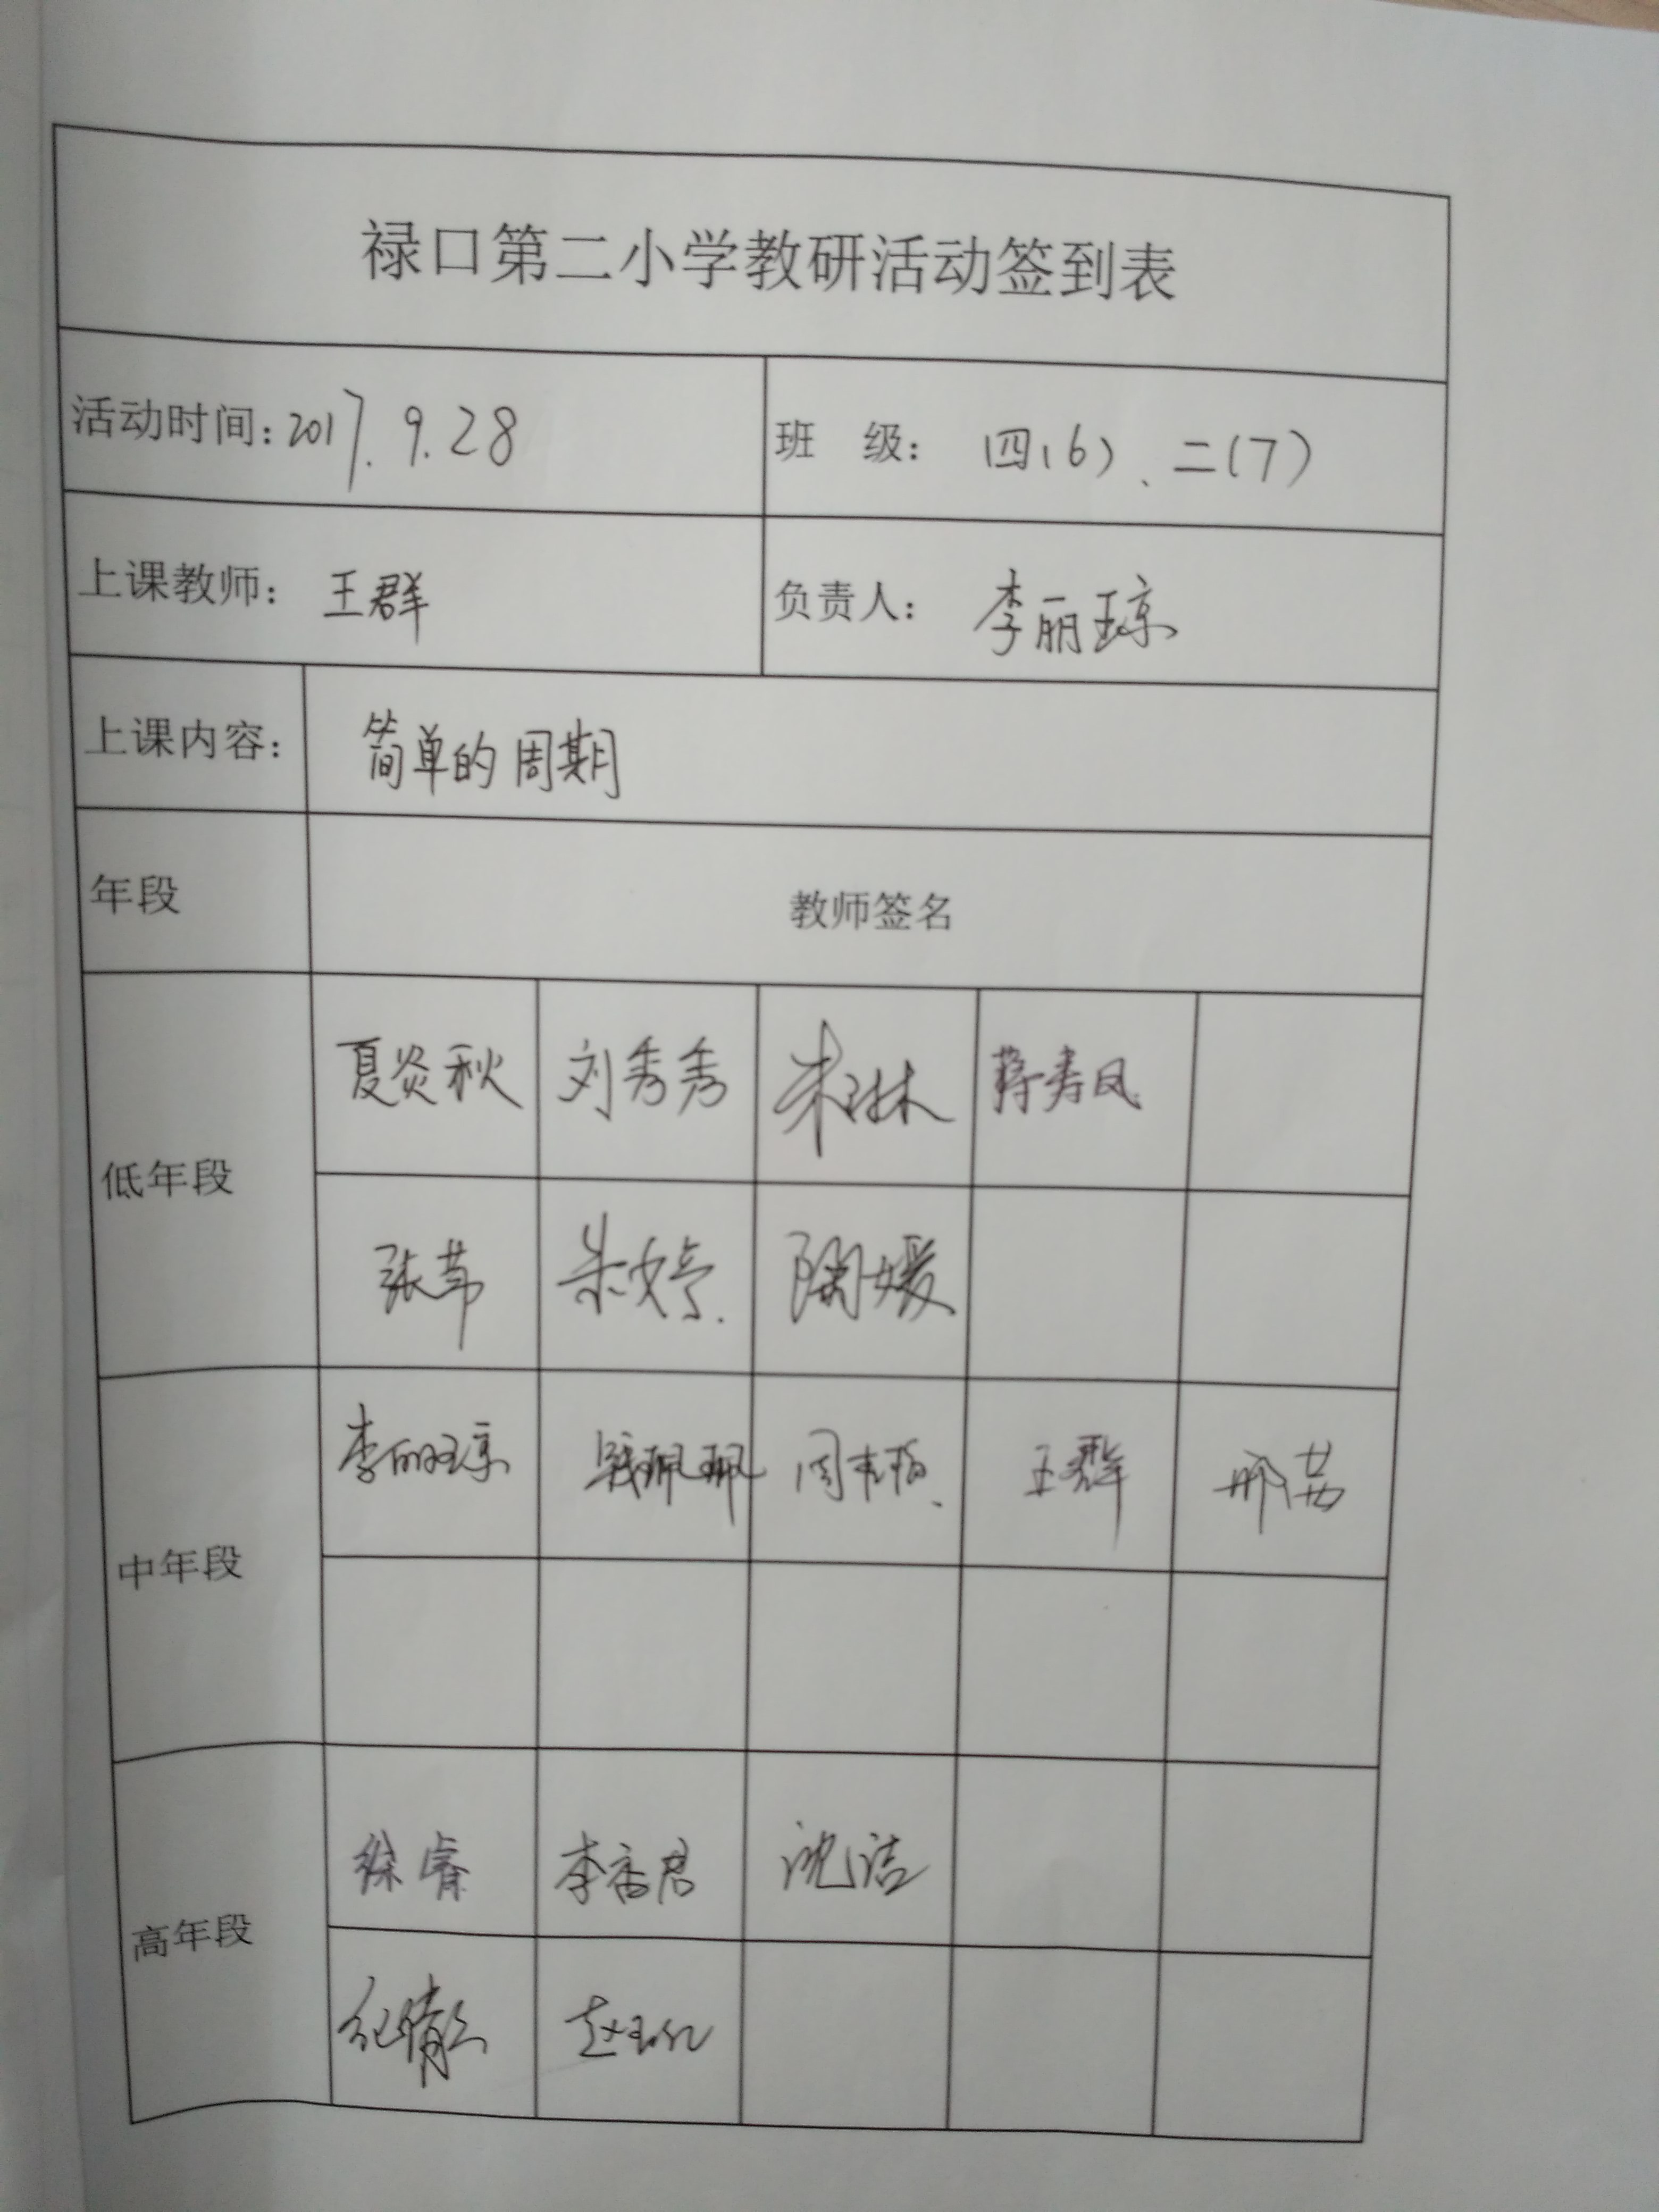 禄口第二小学教研活动签到表
活动时间：2017.9.28 班 级： 四(6)、二(7)
上课教师： 王群 负责人： 李丽琼
上课内容： 简单的周期
年段 教师签名
夏炎秋 刘秀秀 朱琳 蒋寿凤
低年段
张苇 朱婷 陶媛
李丽琼 钱珮珮 王群 邢茜
中年段
徐睿 李香君 沈洁
高年段